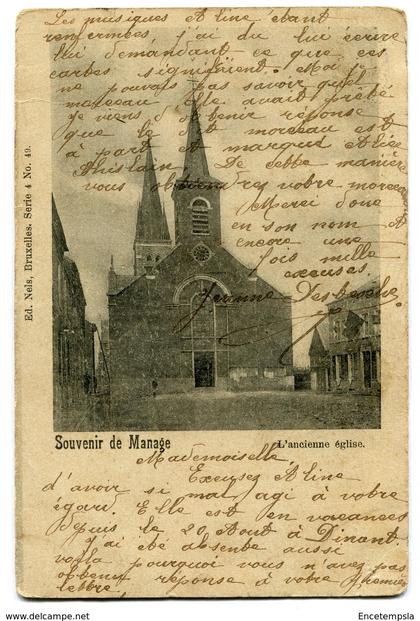 Les musiques et Aline étant
renfermées j'ai du lui écrire
lui demandant ce que ces
cartes signifiaient. Moi je
ne pouvais pas savoir quel
morceau elle avait prêté
je viens d'obtenir réponse
que le dit morceau est
à part et marqué Alice
Ghislain. De cette manière
vous obtiendrez votre morceau
Merci donc
en son nom et
encore une
fois mille
excuses.
Jeanne Desbesche.
Ed. Nels, Bruxelles. Serie 4 No. 49.
Souvenir de Manage
L'ancienne église.
Mademoiselle,
Excusez Aline
d'avoir si mal agi à votre
égard. Elle est en vacances
depuis le 20 Août à Dinant
J'ai été absente aussi
voilà pourquoi vous n'avez pas
obtenu réponse à votre première
lettre,
© Encetempsla